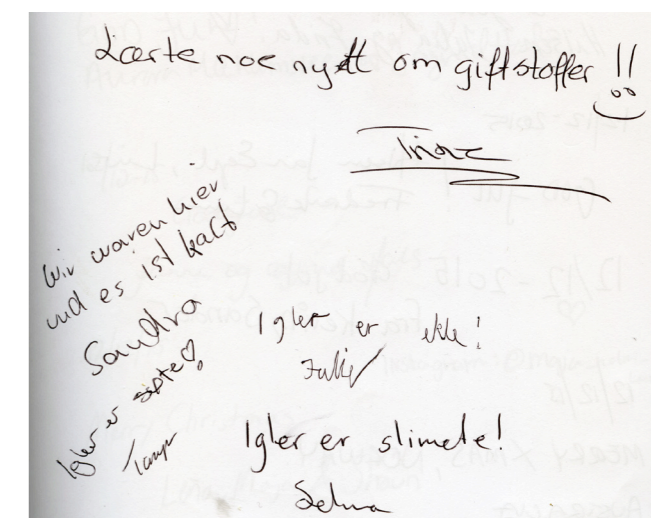 Lærte noe nytt om giftstoffer !!
Wir waren hier
und es ist kalt
Sandra
Igler er ekle!
Julie
Igler er søte♡!
Igler er slimete!
Selma